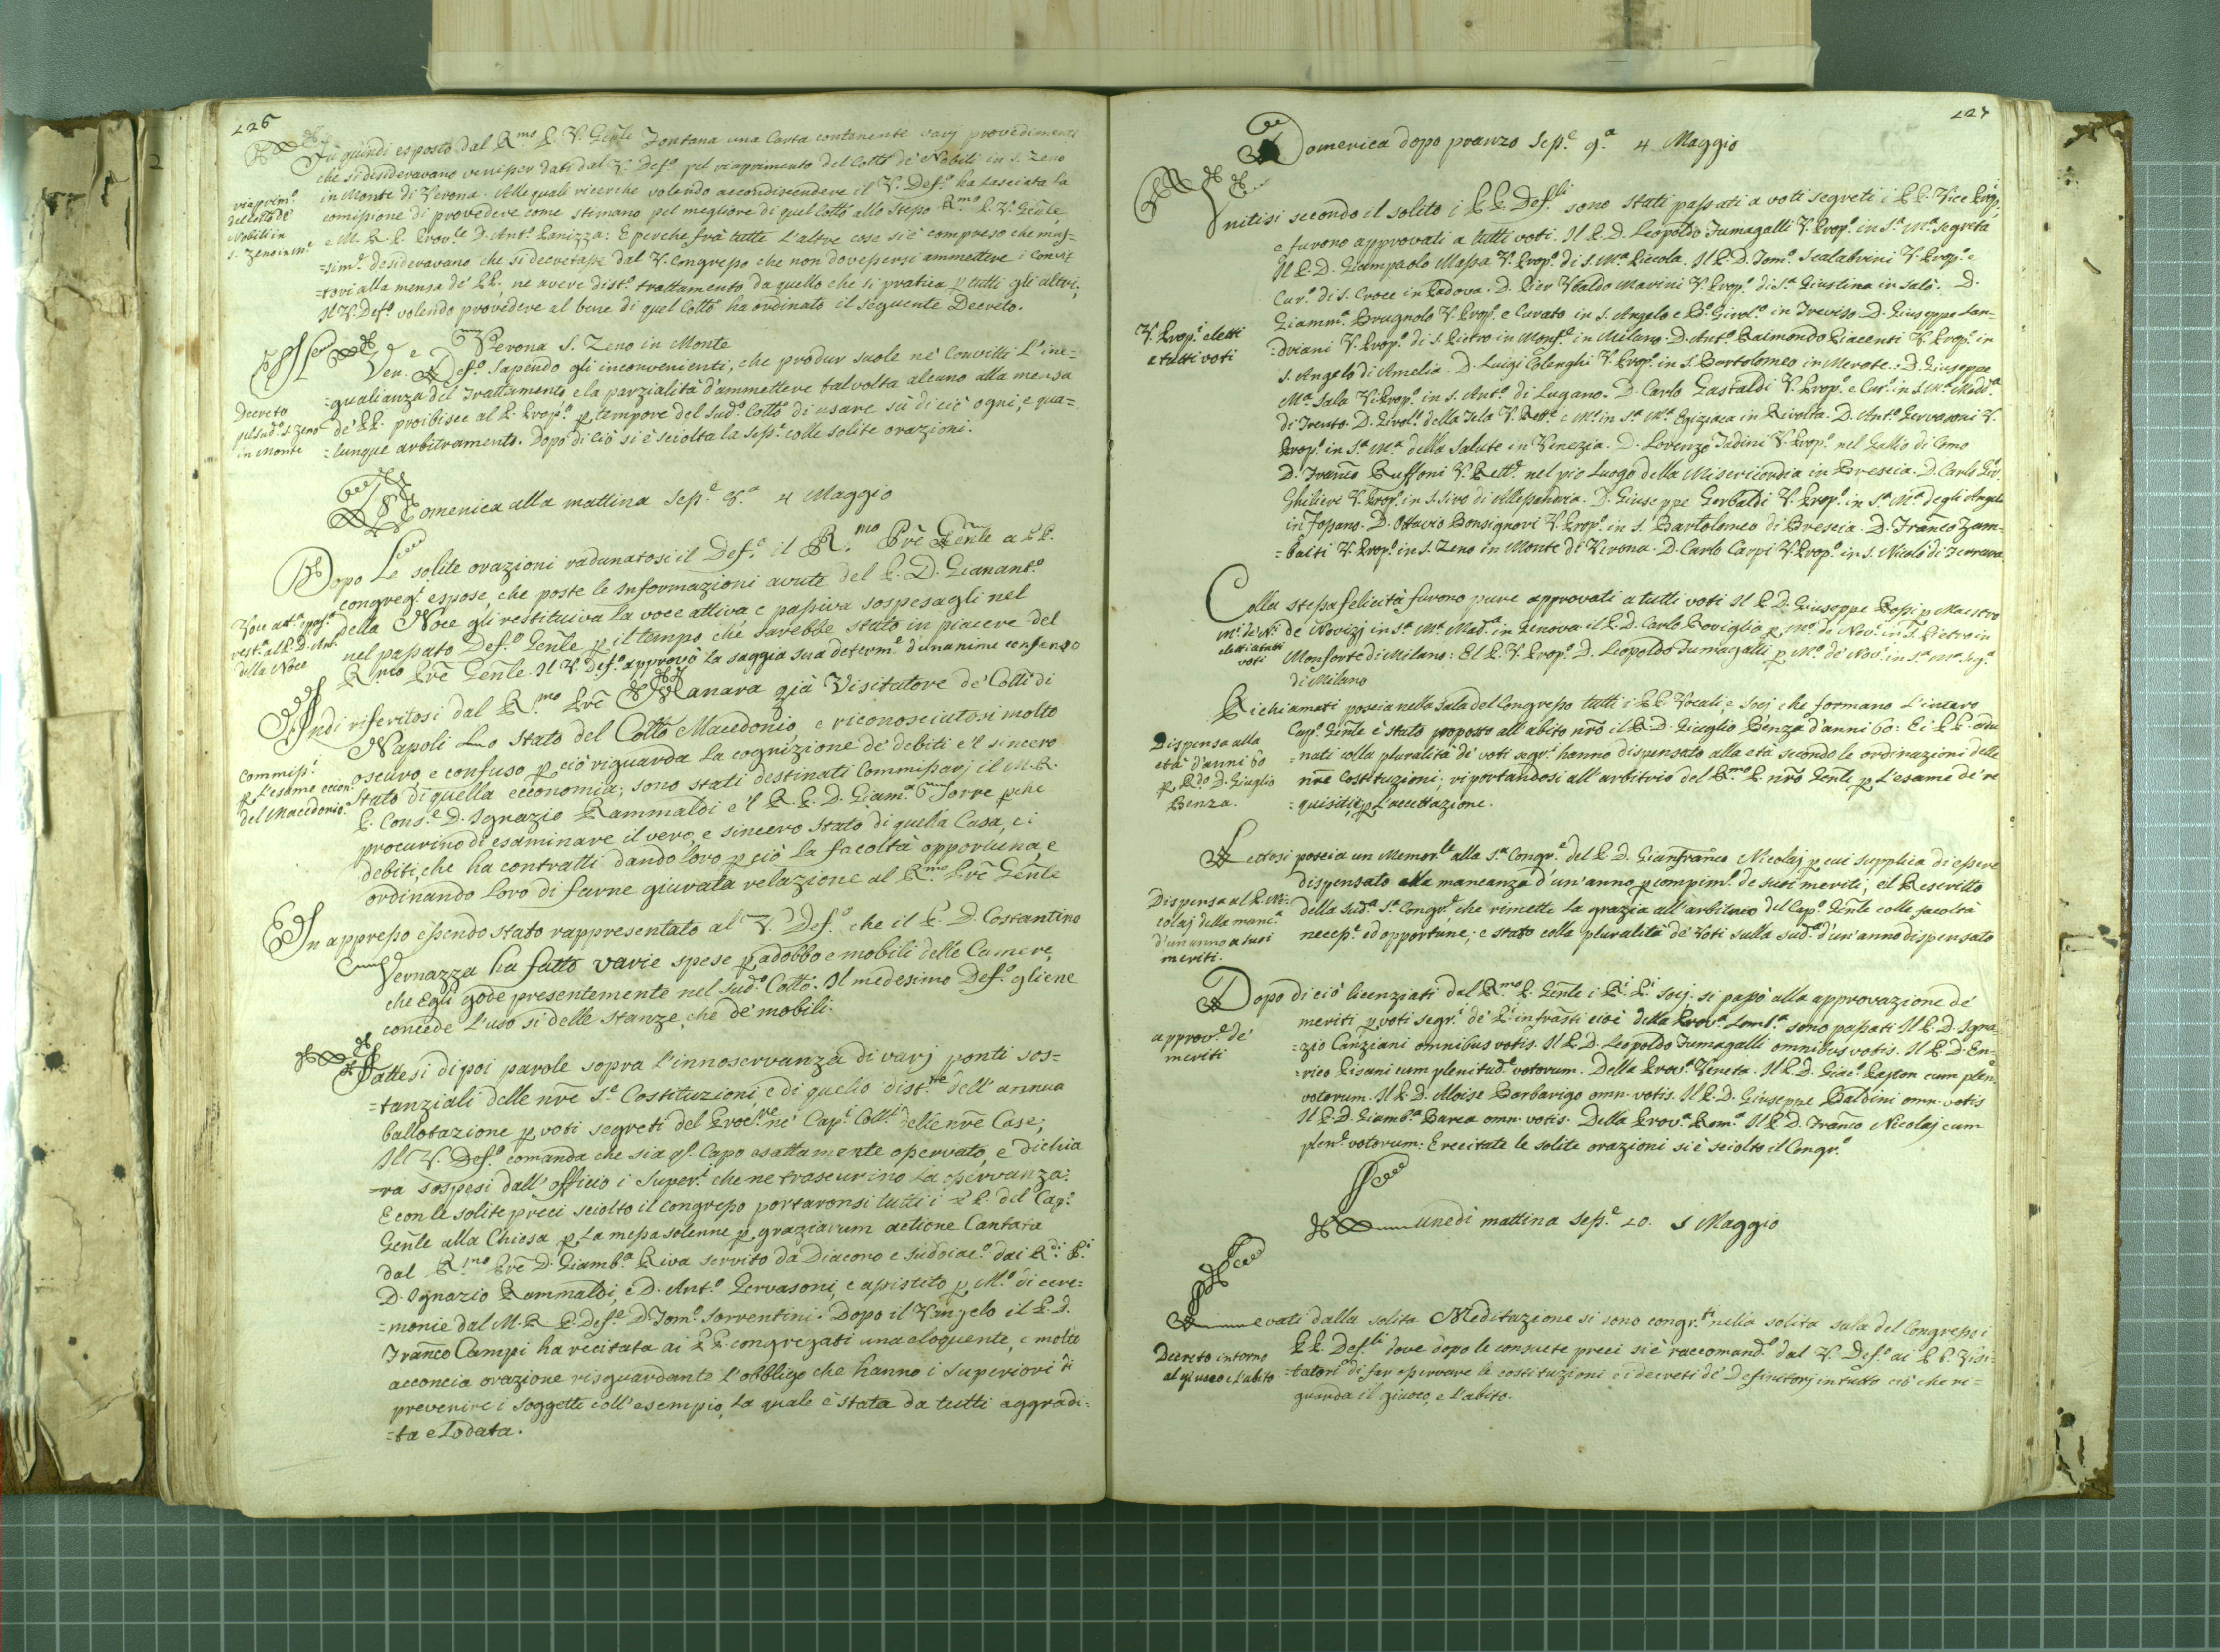 226
Fu quindi esposto dal R.mo P. V. Gen̄le Fontana una Carta contenente varj provedimenti
che si desideravano venisser dati dal V. Def.o pel riaprimento del Coll.o de' Nobili in S. Zeno
in Monte di Verona. Alle quale ricerche volendo accondiscendere il V. Def.o ha lasciata la
comissione di provedere come stimano pel megliore di quel Coll.o allo stesso R.mo P. V. Gen̄le,
e M. R. P. Prov.le D. Ant.o Panizza: E perche frà tutte l'altre cose si è compreso che mas=
=sim.e desideravano che si decretasse dal V. Congresso che non dovessersi ammettere i Convit
=tori alla mensa de' PP., ne avere dist.o trattamento da quello che si pratica p tutti gli altri;
Il V. Def.o volendo provedere al bene di quel Coll.o ha ordinato il seguente Decreto.
riaprim.o
del Coll.o de'
Nobili in
S. Zeno in M.e
Verona S. Zeno in Monte
Ven.e Def.o Sapendo gli inconvenienti, che produr suole ne' Convitti L'ine=
=gualianza del Trattamento, e la parzialità d'ammettere talvolta alcuno alla mensa
de' PP. proibisce al P. Prop.o p tempore del sud.o Coll.o di usare sù di ciò ogni, e qua=
=lunque arbitramento. Dopo di ciò si è sciolta la Sess.e colle solite orazioni.
Decreto
pel sud.o S. Zeno
in Monte
Domenica alla mattina Sess.e 8.a 4 Maggio
Dopo Le solite orazioni radunatosi il Def.o il R.mo Prē Gen̄le a PP.
congreg.i espose, che poste le Informazioni avute del P. D. Gianant.o
della Noce gli restituiva la voce attiva e passiva sospesagli nel
nel passato Def.o Gen̄le p il tempo, che sarebbe stato in piacere del
R.mo Prē Gen̄le. Il V. Def.o approvò la saggia sua determ.e d'unanime consenso
Voce att.a e pass.a
rest.a al P. D. Ant.
della Noce
Indi riferitosi dal R.mo Prē Manara già Visitatore de' Coll.i di
Napoli Lo stato del Coll.o Macedonio, e riconosciutosi molto
oscuro, e confuso p ciò riguarda la cognizione de' debiti e'l sincero
stato di quella economia; sono stati destinati Commissarj il M. R.
P. Cons.e D. Ignazio Rammaldi e'l R. P. D. Giam.a Torre pche
procurino di esaminare il vero, e sincero stato di quella Casa, e i
debiti, che ha contratti dando loro p ciò la facoltà opportuna, e
ordinando loro di farne giurata relazione al R.mo Prē Gen̄le
Commiss.i
p L'esame econ.
del Macedonio.
In appresso essendo stato rappresentato al V. Def.o che il P. D. Costantino
Vernazza ha fatto varie spese p adobbo e mobili delle Camere,
che Egli gode presentemente nel sud.o Coll.o. Il medesimo Def.o gliene
concede L'uso si delle stanze, che de' mobili.
Fattesi di poi parole sopra l'innoservanza di varj ponti sos=
=tanziali delle nr̄e S.e Costituzioni, e di quello dist.te dell'annua
ballotazione p voti segreti del Proc.re ne' Cap.i Coll.i delle nr̄e Case;
Il V. Def.o comanda che sia q.o Capo esattamente osservato, e dichia
=ra sospesi dall'officio i Super.i che ne trascurino la osservanza:
E con le solite preci sciolto il congresso portaronsi tutti i PP. del Cap.o
Gen̄le alla Chiesa p La messa solenne p graziarum actione Cantata
dal R.mo Prē D. Giamb.a Riva servito da Diacono e suddiac.o dai R.di P.i
D. Ignazio Rammaldi, e D. Ant.o Gervasoni, e assistito p M.o di cere=
=monie dal M. R. P. Def.re D. Tom.o Sorrentini. Dopo il Vangelo il P. D.
Fran̄co Campi ha recitata ai PP. congregati una eloquente, e molto
acconcia orazione risguardante L'obbligo che hanno i Superiori di
prevenire i soggetti coll'esempio, la quale è stata da tutti aggradi=
=ta e Lodata.
227
Domenica dopo pranzo Sess.e 9.a 4 Maggio
Unitisi secondo il solito i PP. Def.li sono stati passati a voti segreti i PP. Vice Prop.i
e furono approvati a tutti voti. Il P. D. Leopoldo Fumagalli V. Prop.o in S.a M.a Segreta
Il P. D. Giampaolo Massa V. Prop.o di S. M.a Piccola. Il P. D. Tom.o Scalabrini V. Prop.o e
Cur.o di S. Croce in Padova. D. Pier Ubaldo Marini V. Prop.o di S.a Giustina in Salò. D.
Giamm.a Brugnolo V. Prop.o e Curato in S. Angelo e B.o Girol.o in Treviso. D. Giuseppe Lan=
=driani V. Prop.o di S. Pietro in Monf.e in Milano. D. Ant.o Raimondo Piacenti V. Prop.o in
S. Angelo di Amelia. D. Luigi Colenghi V. Prop.o in S. Bartolomeo in Merate. D. Giuseppe
M.a Sala V. Prop.o in S. Ant.o di Lugano. D. Carlo Gastaldi V. Prop.o e Cur.o in S. M.a Madd.a
di Trento. D. Girol.o della Tela V. Rett.e e M.o in S.a M.a Egiziaca in Rivolta. D. Ant.o Gervasoni V.
Prop.o in S.a M.a della Salute in Venezia. D. Lorenzo Tadini V. Prop.o nel Gallio di Como
D. Fran̄co Ruffoni V. Rett.e nel pio Luogo della Misericordia in Brescia. D. Carlo Gir.
Ghilieri V. Prop.o in S. Siro di Alessandria. D. Giuseppe Gerbaldi V. Prop.o in S.a M.a degli Angeli
in Fossano. D. Ottavio Bonsignori V. Prop.o in S. Bartolomeo di Brescia. D. Fran̄co Zam=
=baiti V. Prop.o in S. Zeno in Monte di Verona. D. Carlo Carpi V. Prop.o in S. Nicolò di Ferrara
V. Prop.i eletti
a tutti voti
Colla stessa felicità furono pure approvati a tutti voti Il P. D. Giuseppe Rossi p Maestro
de' Novizj in S.a M.a Mad.a in Genova il P. D. Carlo Roviglio p M.o de' Nov.i in S. Pietro in
Monforte di Milano: El P. V. Prop.o D. Leopoldo Fumagalli p M.o de' Nov.i in S.a M.a Seg.a
di Milano
M.i de' N.i
eletti a tutti
voti
Richiamati poscia nella sala del Congresso tutti i PP. Vocali, e Socj che formano L'intero
Cap.o Gen̄le è stato proposto all'abito nr̄o il R. D. Giuglio Benza d'anni 60: Ei PP. adu
=nati colla pluralità de' voti segr.i hanno dispensato alla età secondo le ordinazioni delle
nr̄e Costituzioni; riportandosi all'arbitrio del R.mo P. nr̄o Gen̄le p L'esame de' re
=quisiti, e p L'accettazione.
Dispensa alla
età d'anni 60
p R.do D. Giuglio
Benza.
Lettosi poscia un Memor.le alla S.a Congr.e del P. D. Gianfran̄co Nicolaj p cui supplica di essere
dispensato alla mancanza d'un'anno p compim.o de suoi meriti; el Rescritto
della sud.a S.a Congr.e, che rimette la grazia all'arbitrio del Cap.o Gen̄le colle facoltà
necess.e ed opportune; e stato colla pluralità de' Voti sulla sud.a d'un'anno dispensato
Dispensa al P. Ni=
colaj della manc.a
d'un anno a suoi
meriti.
Dopo di ciò licenziati dal R.mo P. Gen̄le i R.i P.i Socj. si passò alla approvazione de'
meriti p voti segr.i de' P.i infrasti cioè della Prov.a Lomb.a sono passati Il P. D. Igna
=zio Canziani omnibus votis. Il P. D. Leopoldo Fumagalli omnibus votis. Il P. D. En=
=rico Pisani cum plenitud.e votorum. Della Prov.a Veneta. Il P. D. Giac.o Pajton cum plen.
votorum. Il P. D. Aloise Barbarigo omn. votis. Il P. D. Giuseppe Baldini omn. votis
Il P. D. Giamb.a Barca omn. votis. Della Prov.a Rom.a Il P. D. Fran̄co Nicolaj cum
plen.e votorum: E recitate le solite orazioni si è sciolto il Congr.o
approv.e de'
meriti
Lunedì mattina Sess.e 10. 5 Maggio
Levati dalla solita Meditazione si sono congr.ti nella solita sala del Congresso i
PP. Def.li dove dopo le consuete preci si è raccomand.o dal V. Def.o ai PP. Visi=
=tatori di far osservare le costituzioni e i decreti de' Definitorj in tutto ciò che ri=
guarda il giuoco, e l'abito.
Decreto intorno
al giuoco e l'abito